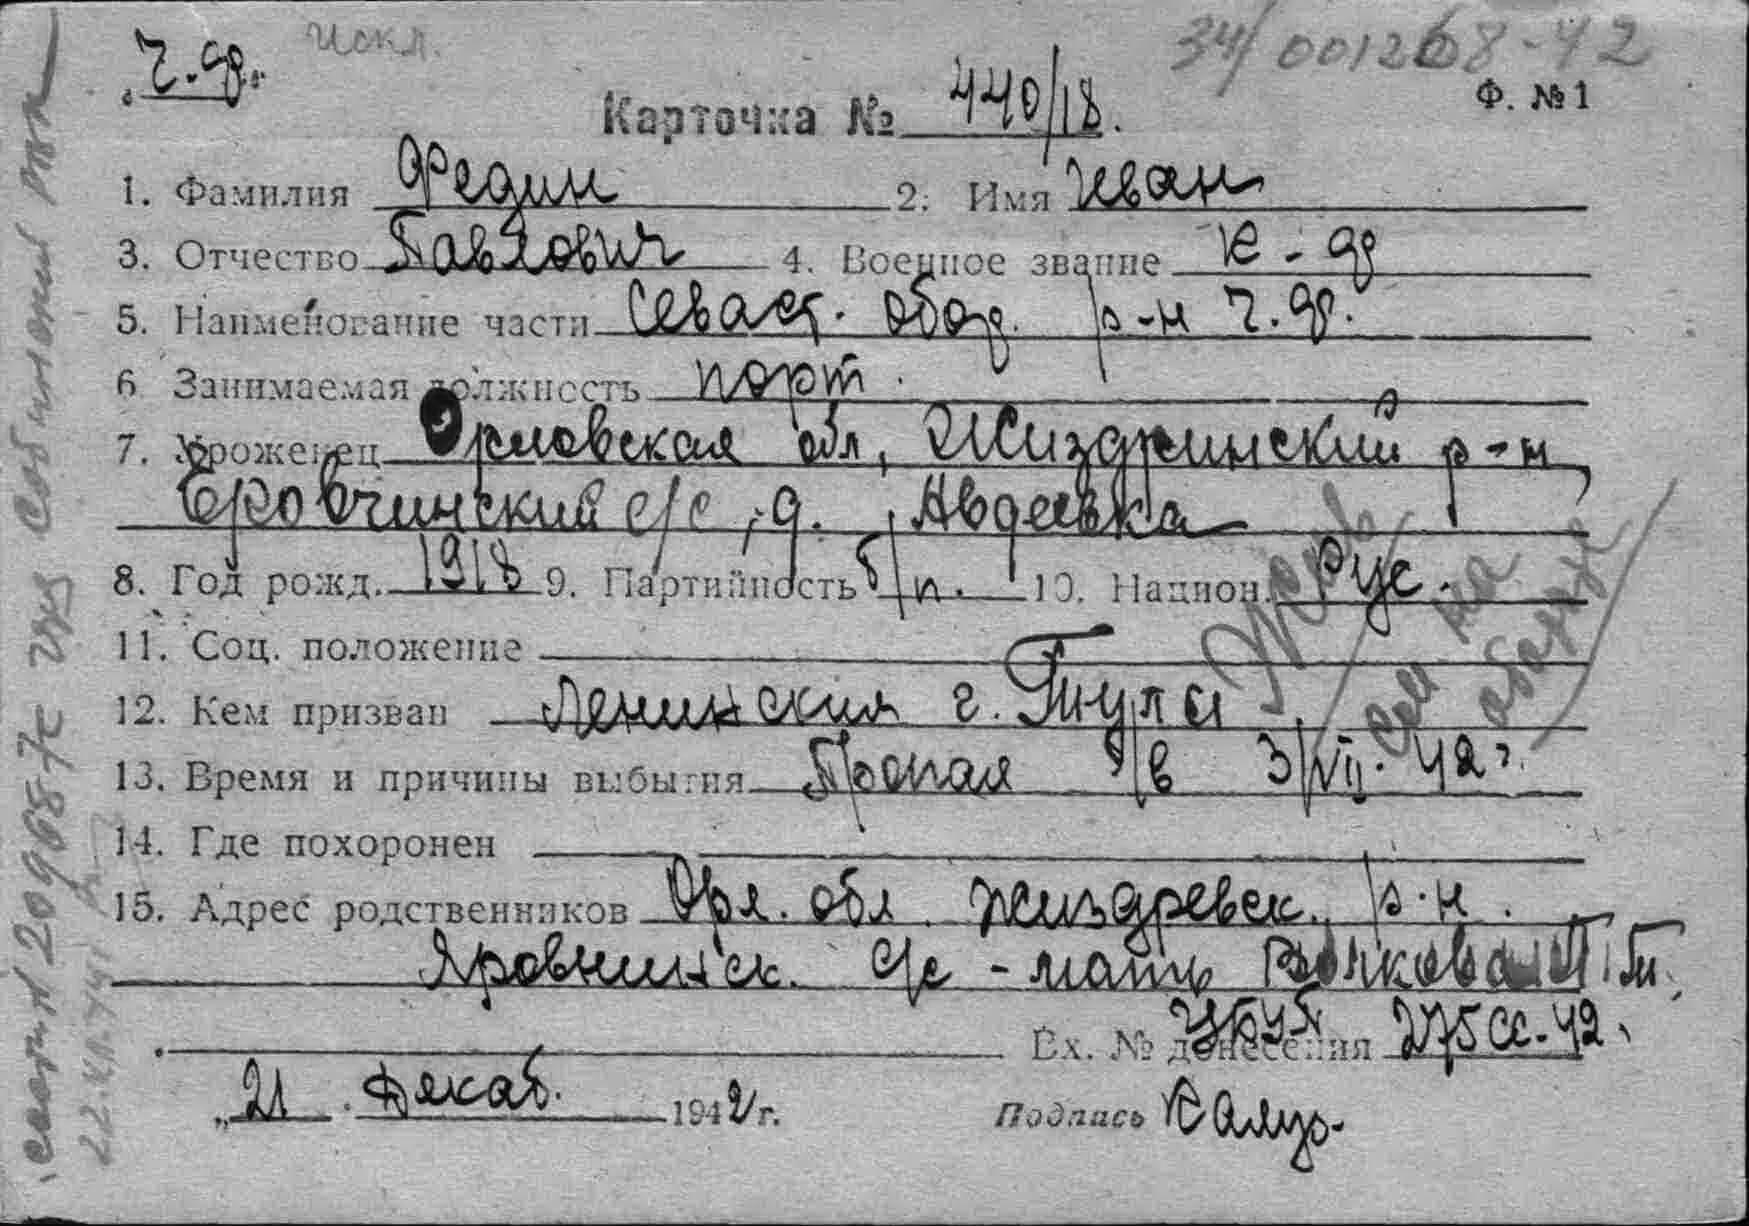 Ч.ф. искл. 34/001268-42
Ф. №1
Карточка № 440/18.
1. Фамилия Федин 2. Имя Иван
3. Отчество Павлович 4. Военное звание к-ф
5. Наименование части Севаст. обор. р-н Ч.ф.
6 Занимаемая должность порт.
7. Уроженец Орловская обл, Жиздринский р-н,
Еровчинский с/с, д. Авдеевка
8. Год рожд. 1918 9. Партийность б/п. 10. Национ. Рус.
11. Соц. положение
12. Кем призван Ленинским г. Тулы
13. Время и причины выбытия Пропал б/в 3/VII-42 г.
14. Где похоронен
15. Адрес родственников Орл. обл. жиздревск. р-н.
Яровнинск. с/с - мать Волкова П. М.
Вх. № донесения 275сс-42.
„21 Декаб. 1942 г. Подпись
Жив
См на обороте